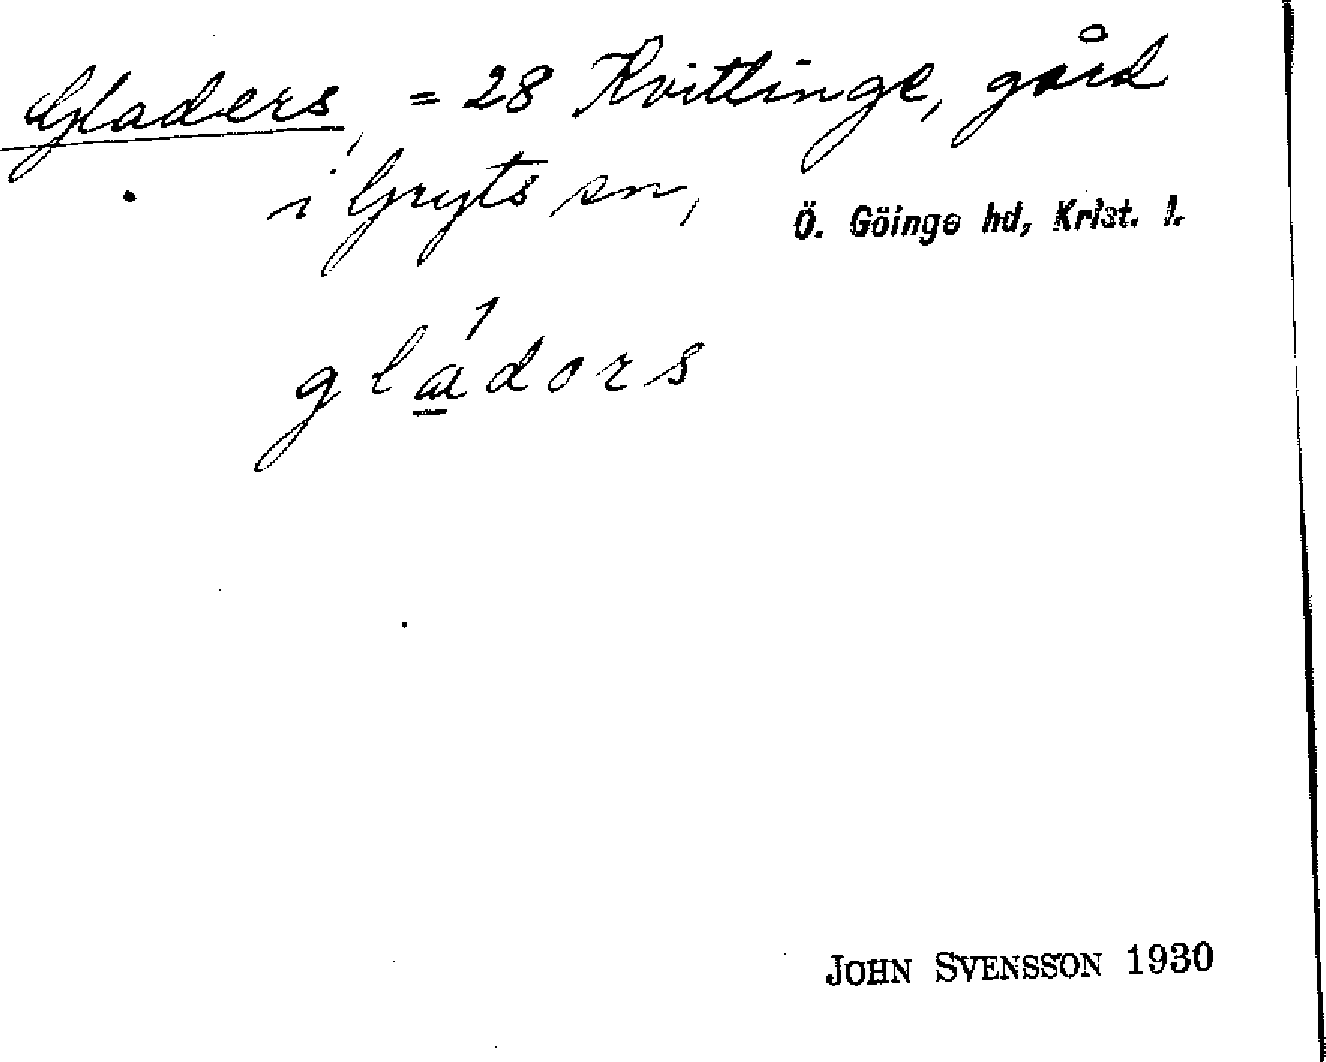 Gladers, = 28 Kvittinge, gård
i Gryts sn, Ö. Göinge hd, Krist. l.
gládors
JOHN SVENSSON 1930